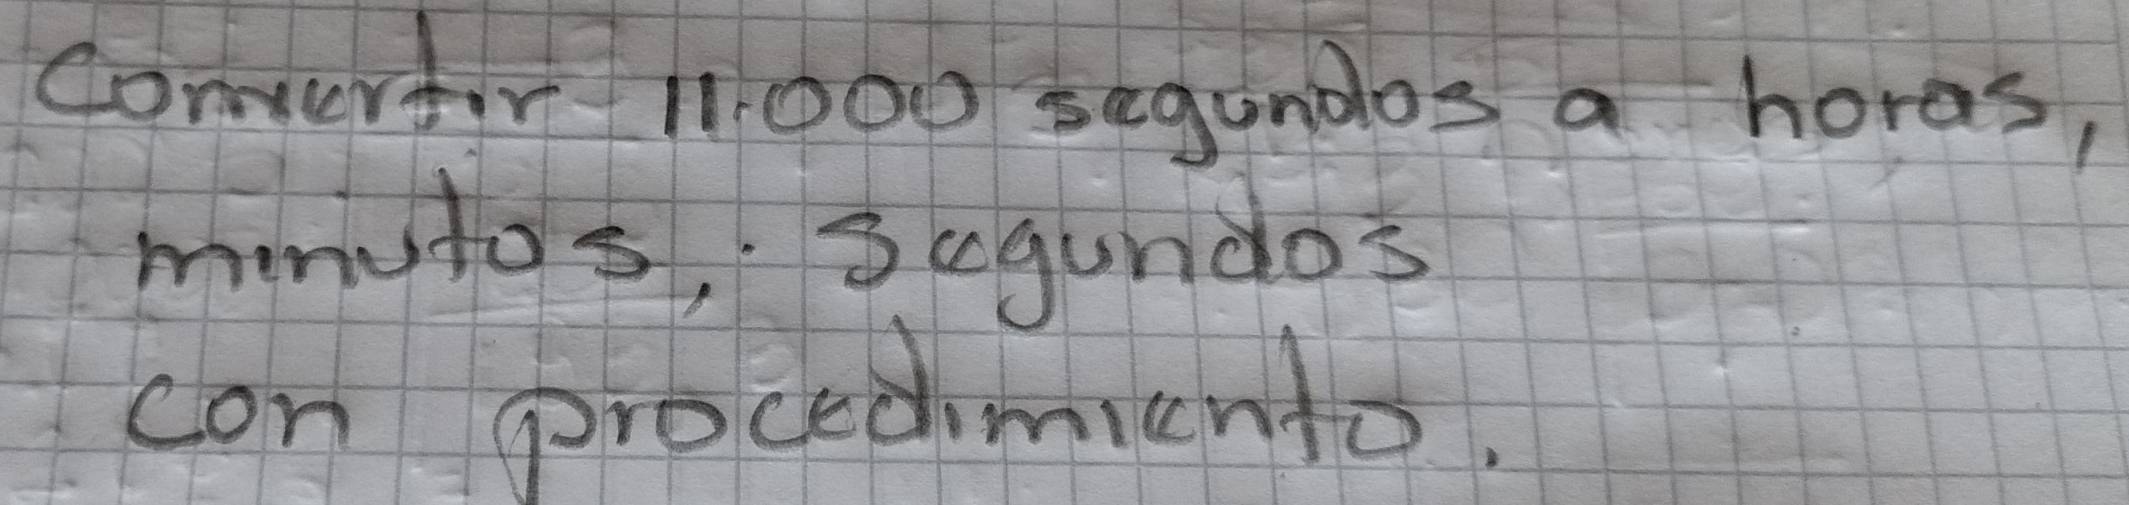 Convertir 11.000 segundos a horas,
minutos, segundos
con procedimiento.